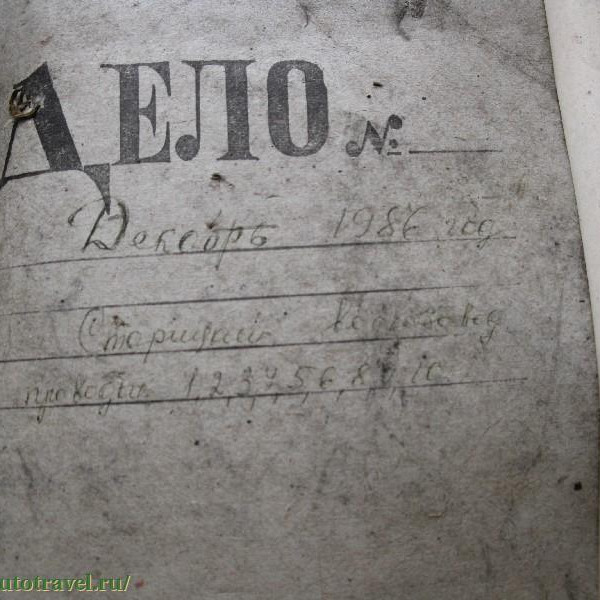 ДЕЛО №
Декабрь 1986 год
Старицкий
1,2,3,4,5,6,8,9,10
utotravel.ru/